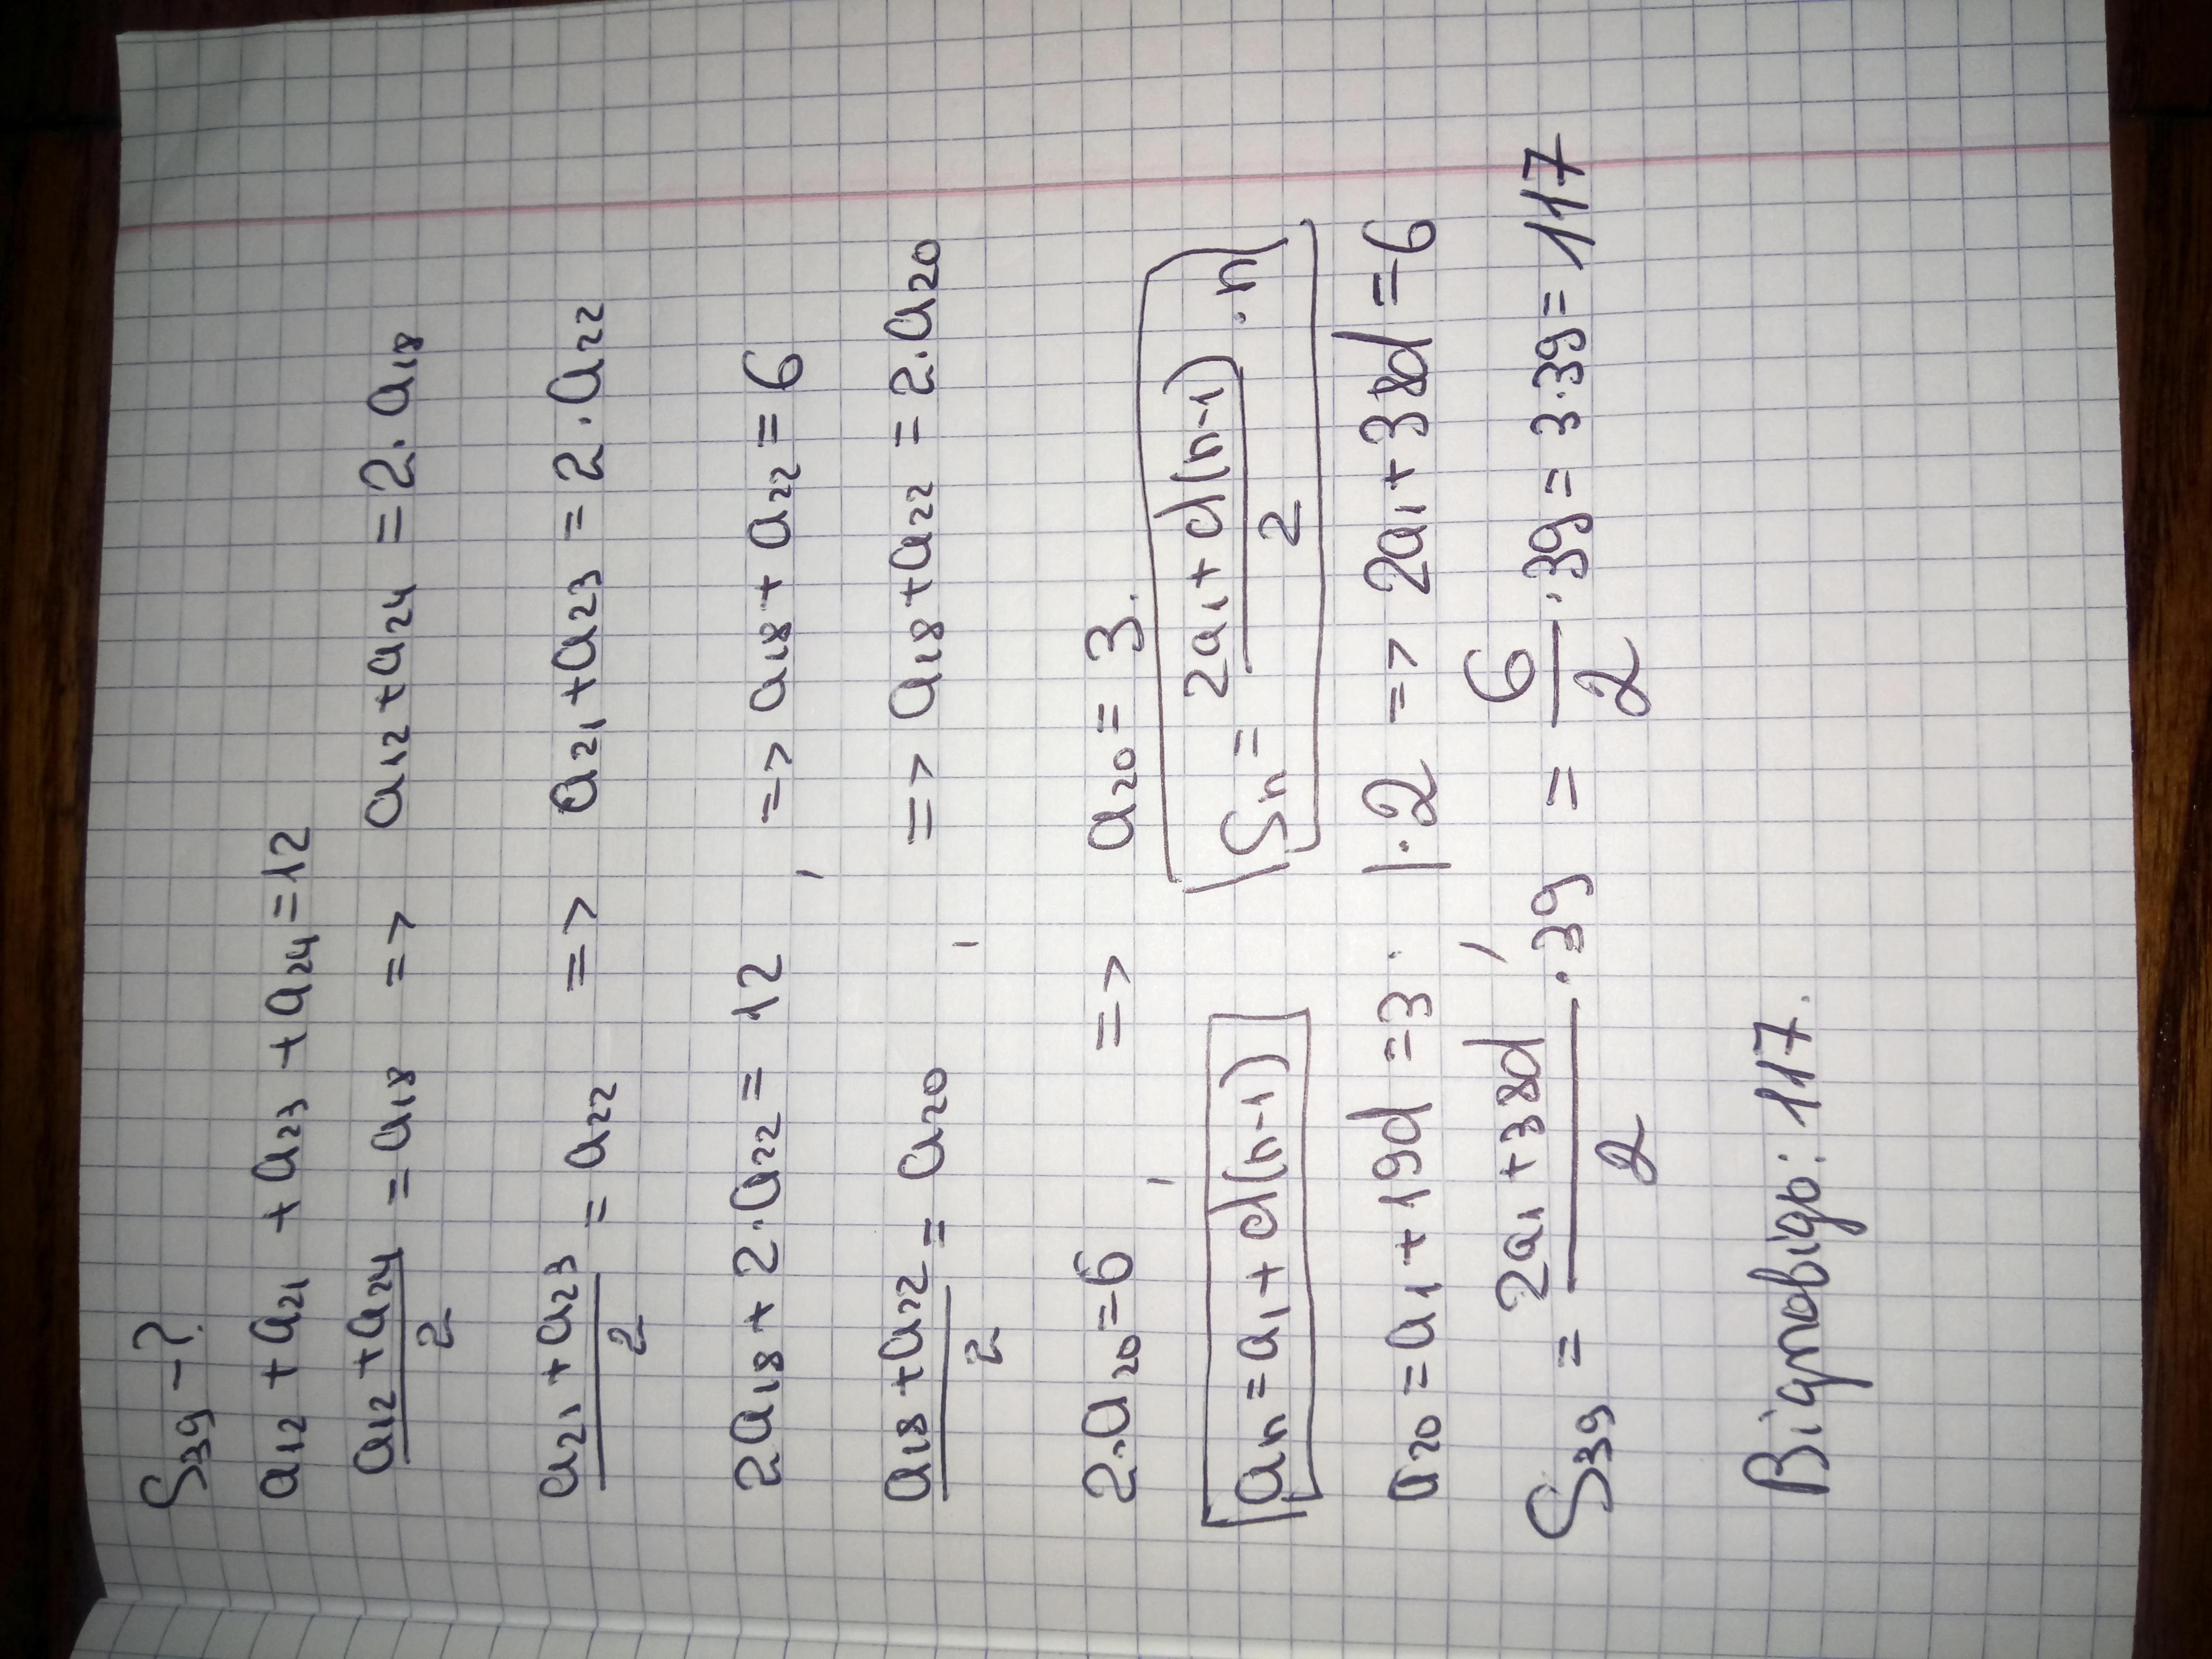 S₃₉ - ?
a₁₂ + a₂₁ + a₂₃ + a₂₄ = 12
(a₁₂ + a₂₄)/2 = a₁₈ => a₁₂ + a₂₄ = 2 · a₁₈
(a₂₁ + a₂₃)/2 = a₂₂ => a₂₁ + a₂₃ = 2 · a₂₂
2a₁₈ + 2 · a₂₂ = 12, => a₁₈ + a₂₂ = 6
(a₁₈ + a₂₂)/2 = a₂₀, => a₁₈ + a₂₂ = 2 · a₂₀
2 · a₂₀ = 6, => a₂₀ = 3.
aₙ = a₁ + d(n-1) Sₙ = (2a₁ + d(n-1))/2 · n
a₂₀ = a₁ + 19d = 3, | · 2 => 2a₁ + 38d = 6
S₃₉ = (2a₁ + 38d)/2 · 39 = 6/2 · 39 = 3 · 39 = 117
Відповідь: 117.